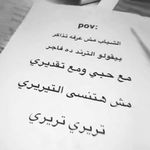 pov:
الشباب مش عرفه تذاكر
بيقولو الترند ده فاجر
مع حبي ومع تقديري
مش هتنسى التيريري
تريري تريري